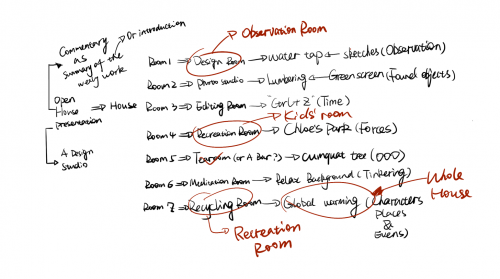 Observation Room
Commentary as summary of the early work
Or introduction
Open House presentation
House
A Design Studio
Room 1 Design Room water tap sketches (Observation)
Room 2 Photo studio Lumbering Green screen (Found objects)
Room 3 Editing Room "Ctrl+Z" (Time)
Kids' room
Room 4 Recreation Room Chloe's Park (Forces)
Room 5 Tearoom (or A Bar?) cumquat tree (OOO)
Room 6 Meditation Room Relax Background (Tinkering)
Room 7 Recycling Room Global warming (Characters Places & Events)
Whole House
Recreation Room